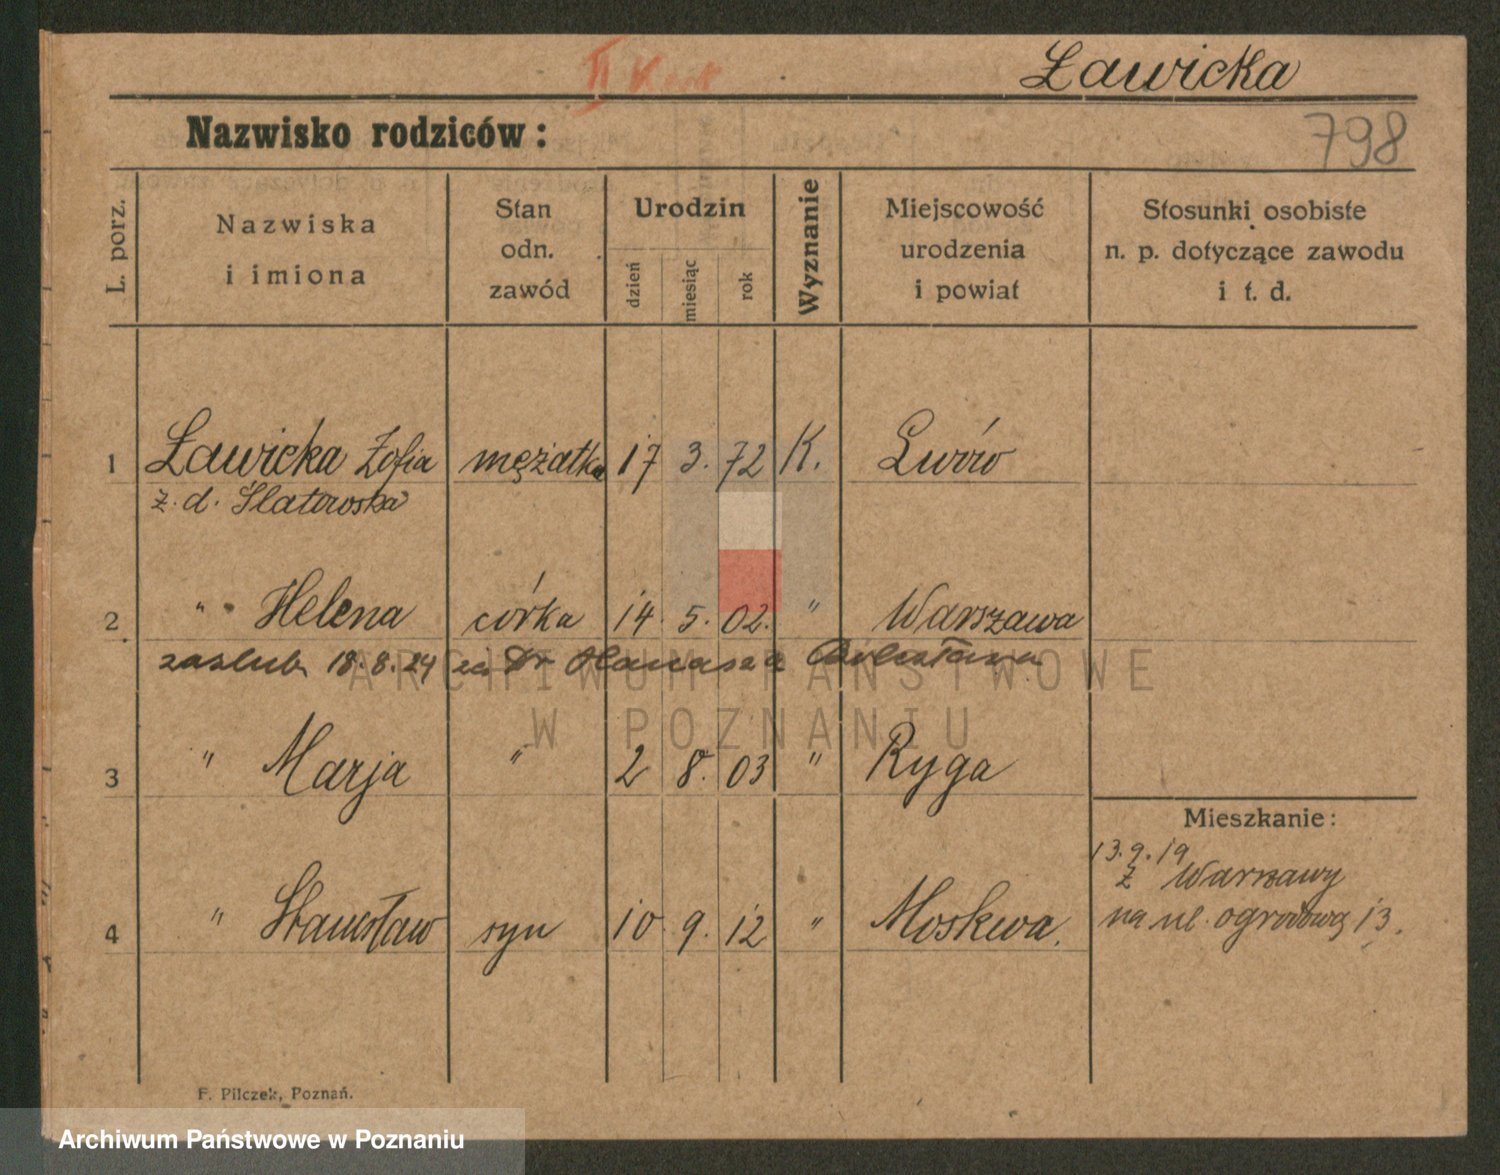 II
Ławicka
Nazwisko rodziców:
798
L. porz.
Nazwiska
i imiona
Stan
odn.
zawód
Urodzin
dzień
miesiąc
rok
Wyznanie
Miejscowość
urodzenia
i powiat
Stosunki osobiste
n. p. dotyczące zawodu
i t. d.
1 Ławicka Zofia mężatka 17 3. 72 K. Lwów
z. d.
2 " Helena córka 14. 5. 02. " Warszawa
zaslub. 18.8.24 za Dr
ARCHIWUM PAŃSTWOWE
W POZNANIU
3 " Marja " 2 8. 03 " Ryga
Mieszkanie:
13.9.19
z Warszawy
na ul. ogrodową 13.
4 " Stanisław syn 10. 9. 12 " Moskwa.
F. Pilczek, Poznań.
Archiwum Państwowe w Poznaniu